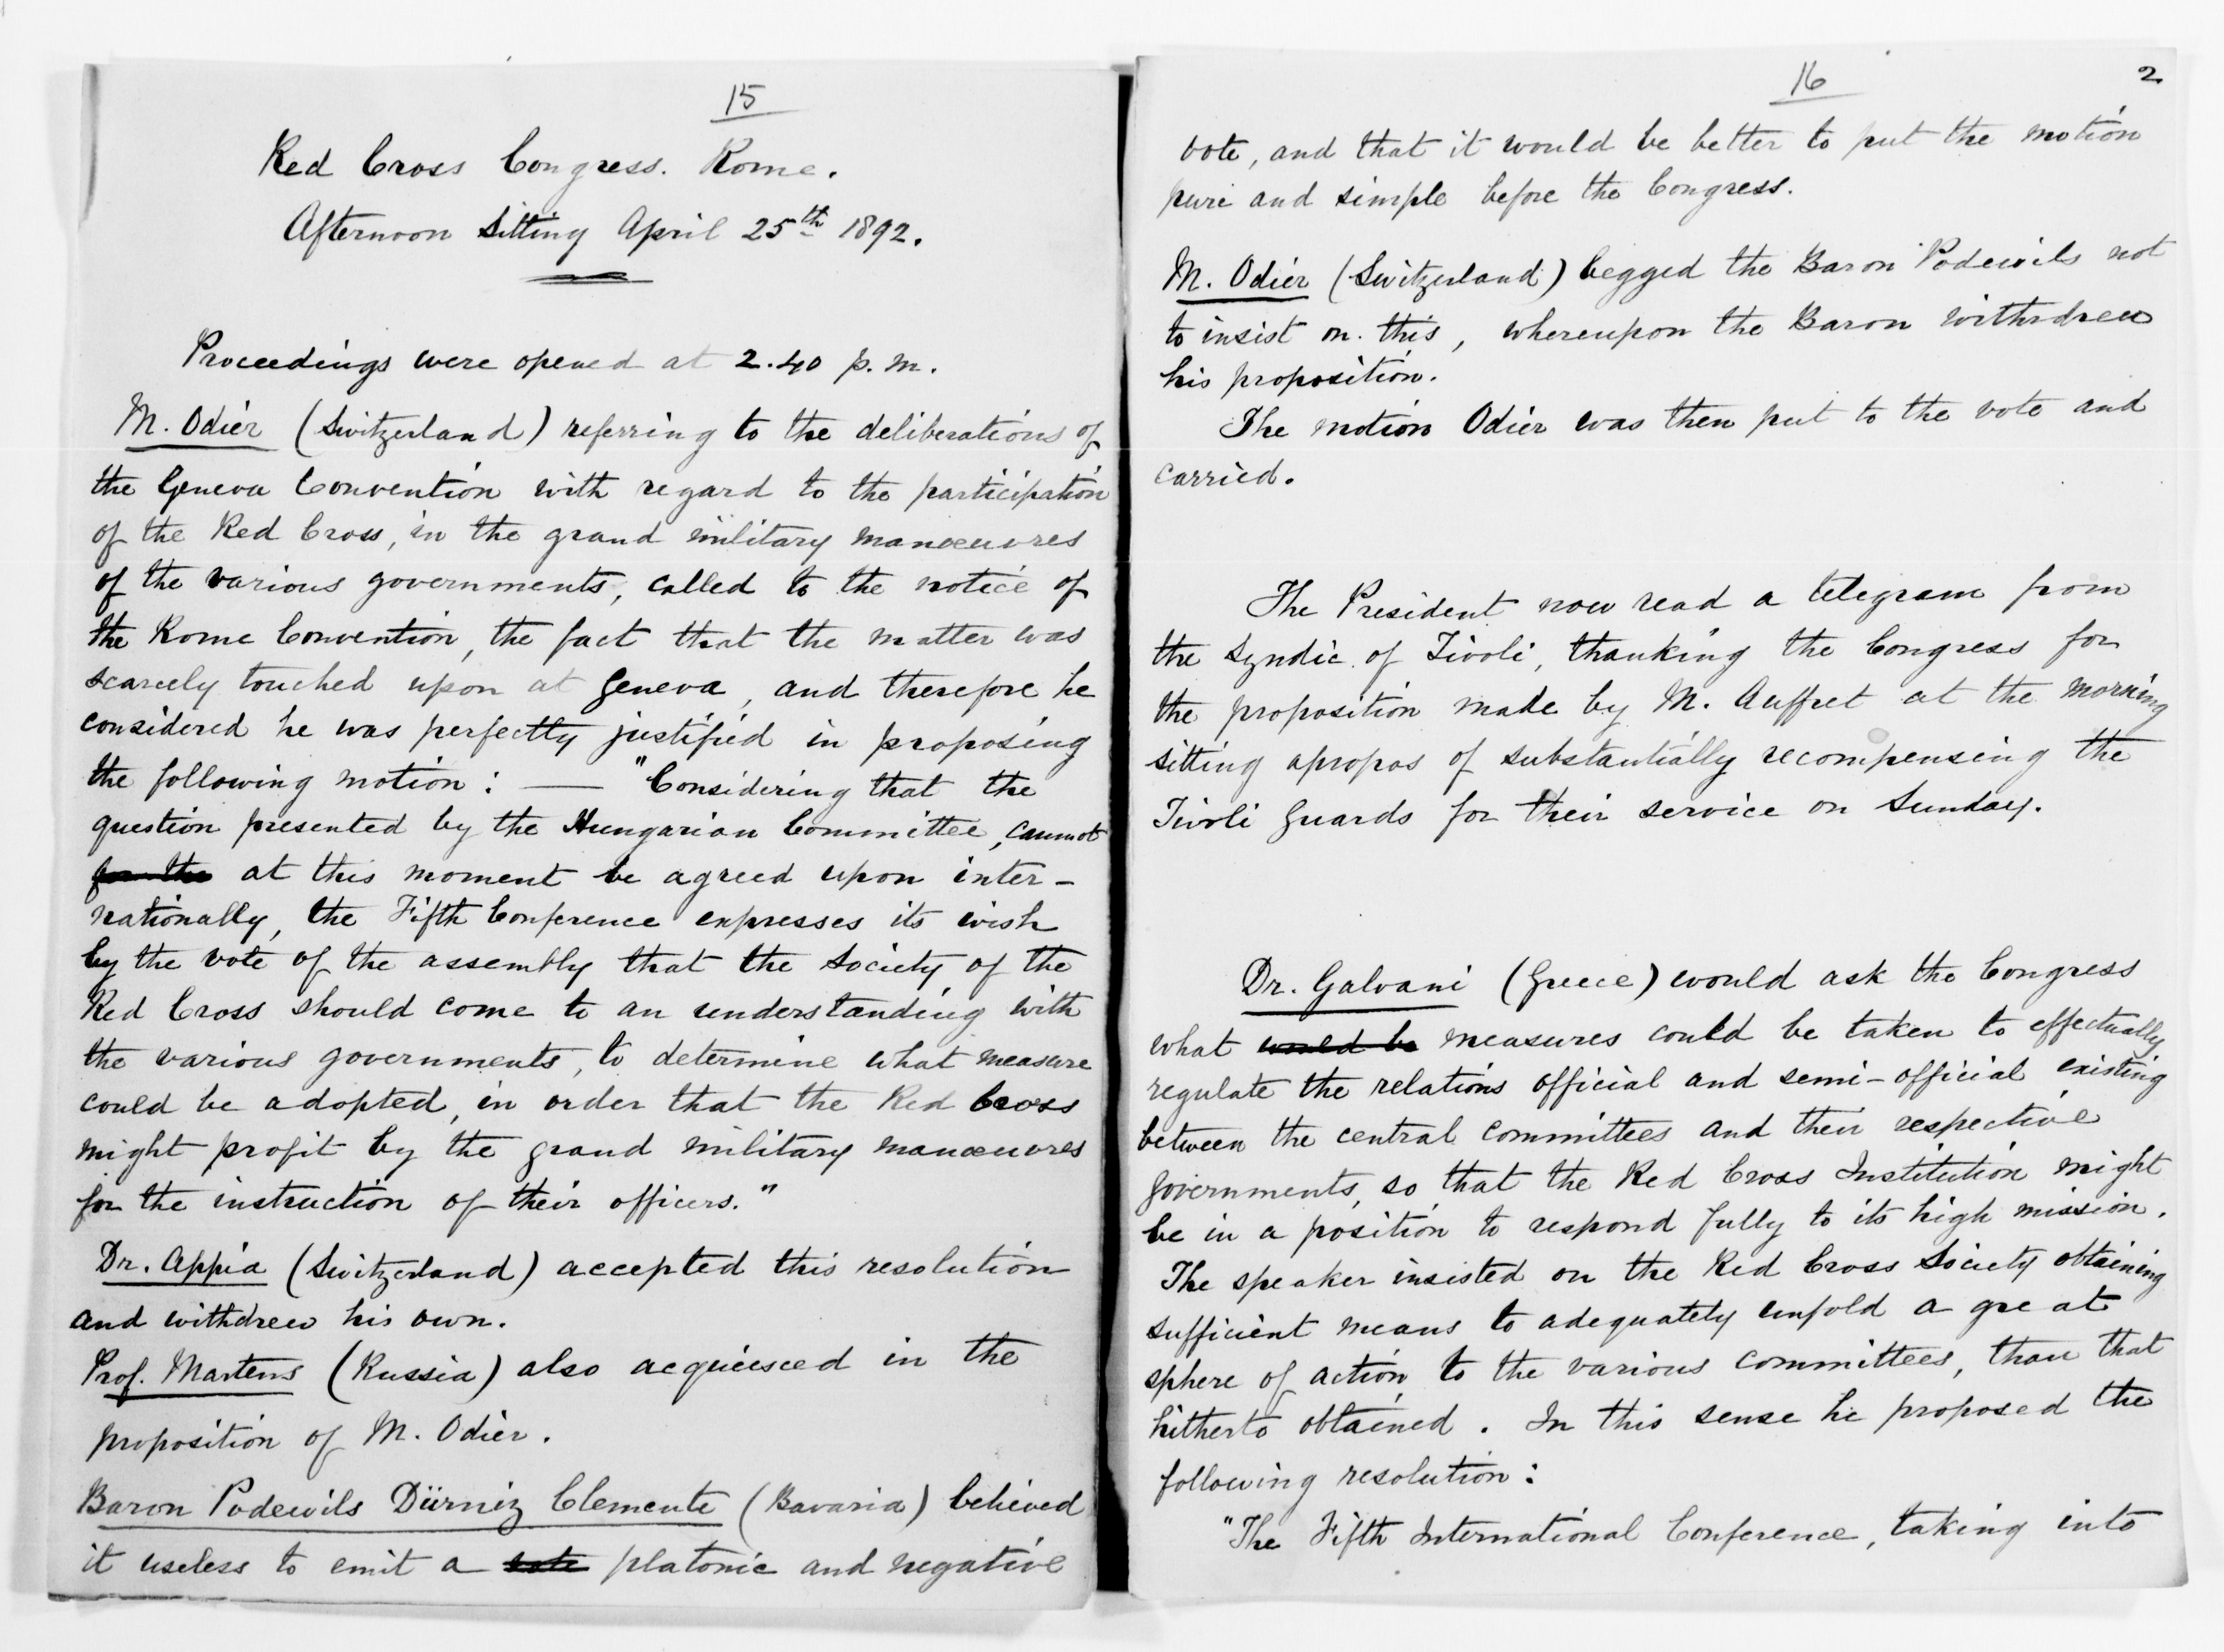 15
Red Cross Congress. Rome.
Afternoon Sitting April 25th 1892.
Proceedings were opened at 2.40 p.m.
M. Odier (Switzerland) referring to the deliberations of
the Geneva Convention with regard to the participation
of the Red Cross, in the grand military manœuvres
of the various governments, called to the notice of
the Rome Convention, the fact that the matter was
scarcely touched upon at Geneva, and therefore he
considered he was perfectly justified in proposing
the following motion : — "Considering that the
question presented by the Hungarian Committee, cannot
for the at this moment be agreed upon inter-
nationally, the Fifth Conference expresses its wish
by the vote of the assembly that the Society of the
Red Cross should come to an understanding with
the various governments, to determine what measure
could be adopted, in order that the Red Cross
might profit by the grand military manœuvres
for the instruction of their officers."
Dr. Appia (Switzerland) accepted this resolution
and withdrew his own.
Prof. Martens (Russia) also acquiesced in the
proposition of M. Odier.
Baron Podewils Dürniz Clemente (Bavaria) believed
it useless to emit a vote platonic and negative
16
2
vote, and that it would be better to put the motion
pure and simple before the Congress.
M. Odier (Switzerland) begged the Baron Podewils not
to insist on this, whereupon the Baron withdrew
his proposition.
The motion Odier was then put to the vote and
carried.
The President now read a telegram from
the Syndic of Tivoli, thanking the Congress for
the proposition made by M. Auffret at the morning
sitting apropos of substantially recompensing the
Tivoli Guards for their service on Sunday.
Dr. Galvani (Greece) would ask the Congress
what would be measures could be taken to effectually
regulate the relations official and semi-official existing
between the central committees and their respective
Governments, so that the Red Cross Institution might
be in a position to respond fully to its high mission.
The speaker insisted on the Red Cross Society obtaining
sufficient means to adequately unfold a great
sphere of action to the various committees, than that
hitherto obtained. In this sense he proposed the
following resolution :
"The Fifth International Conference, taking into